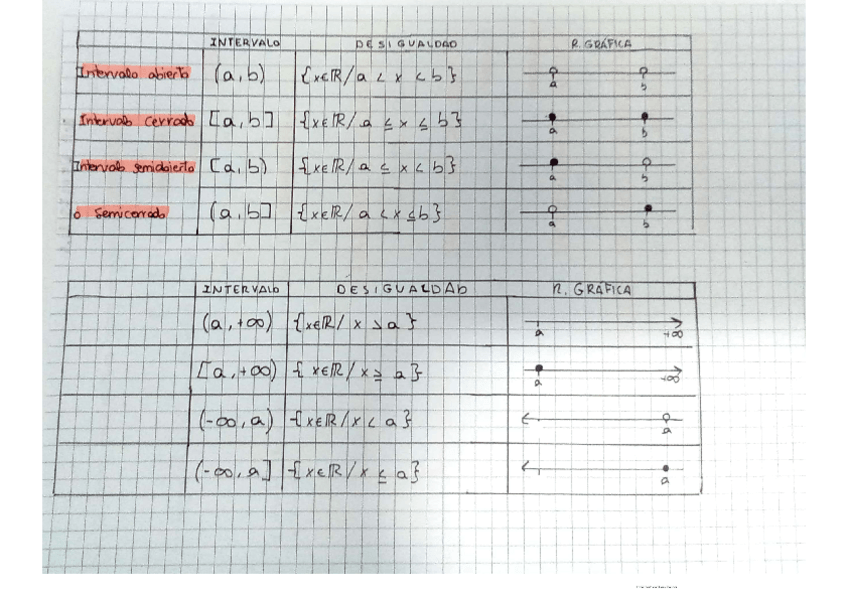 INTERVALO DESIGUALDAD R. GRÁFICA
Intervalo abierto (a,b) {x∈ℝ/a < x < b} a b
Intervalo cerrado [a,b] {x∈ℝ/a ≤ x ≤ b} a b
Intervalo semiabierto [a,b) {x∈ℝ/a ≤ x < b} a b
o semicerrado (a,b] {x∈ℝ/a < x ≤ b} a b
INTERVALO DESIGUALDAD R. GRÁFICA
(a,+∞) {x∈ℝ/ x > a} a +∞
[a,+∞) {x∈ℝ/x ≥ a} a +∞
(-∞,a) {x∈ℝ/x < a} a
(-∞,a] {x∈ℝ/x ≤ a} a